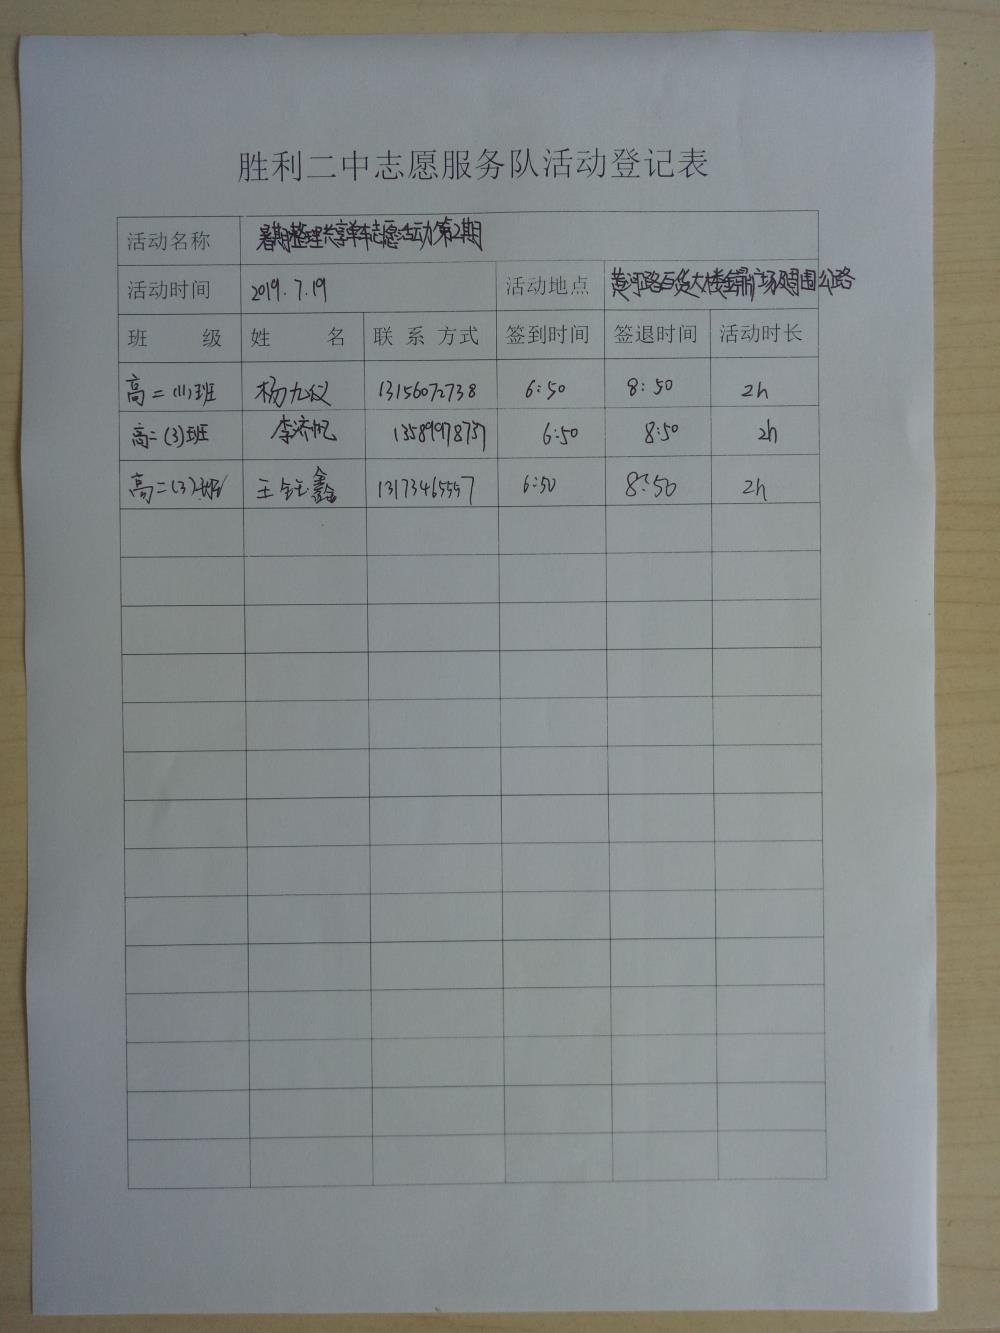 胜利二中志愿服务队活动登记表
活动名称 暑期整理共享单车志愿活动第2期
活动时间 2019.7.19 活动地点 黄河路百货大楼金鼎广场及周围公路
班 级 姓 名 联 系 方式 签到时间 签退时间 活动时长
高二(11)班 杨九仪 13156072738 6:50 8:50 2h
高二(3)班 李济帆 13589978737 6:50 8:50 2h
高二(3)班 王钰鑫 13173465557 6:50 8:50 2h